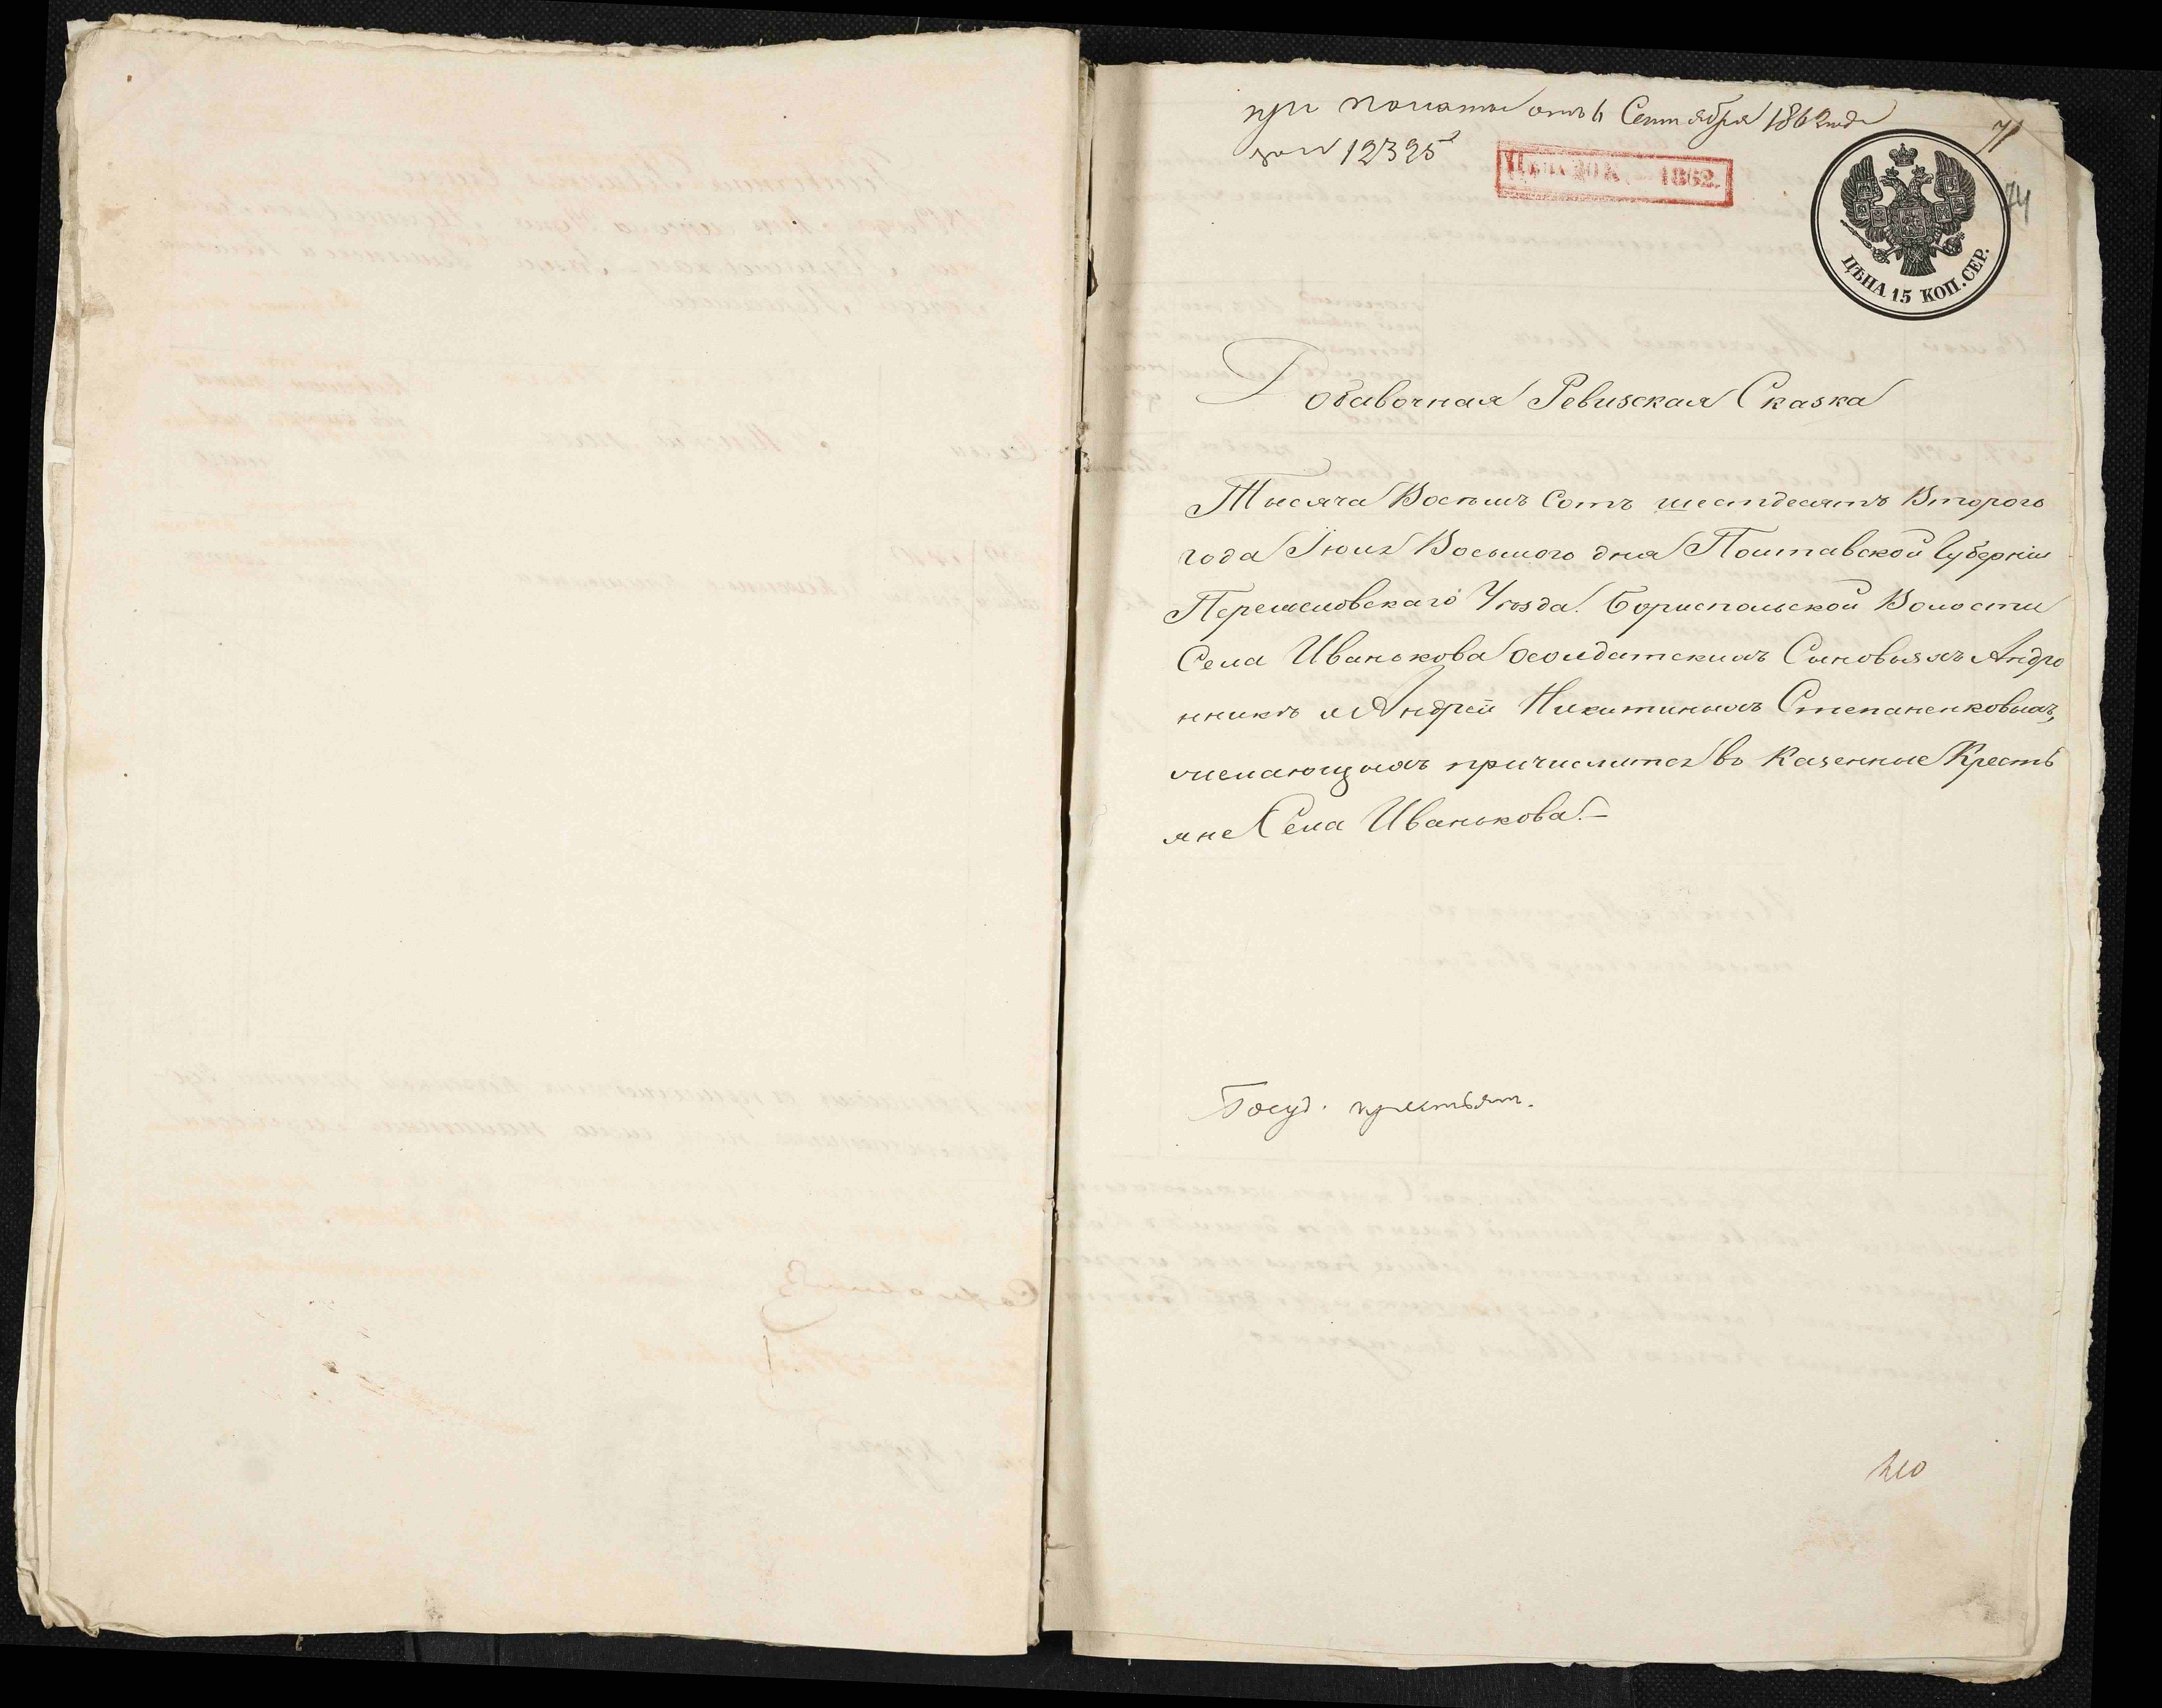 при палаты отъ 6 Сентября 1862 года
за № 12325
71
ЦѢНА 20 К. 1862.
74
ЦѢНА 15 КОП. СЕР.
Добавочная Ревизская Сказка
Тысяча Восемь Сотъ шестдесятъ Второго
года Іюля Восьмого дня Полтавской Губерніи
Переяславскаго Уѣзда. Бориспольской Волости
Села Иванькова о солдатскихъ Сыновьяхъ Андро
нникѣ и Андрей Никитиныхъ Степаненковыхъ,
желающихъ причислится въ Казенные Кресть
яне Села Иванькова.—
Госуд. крестьян.